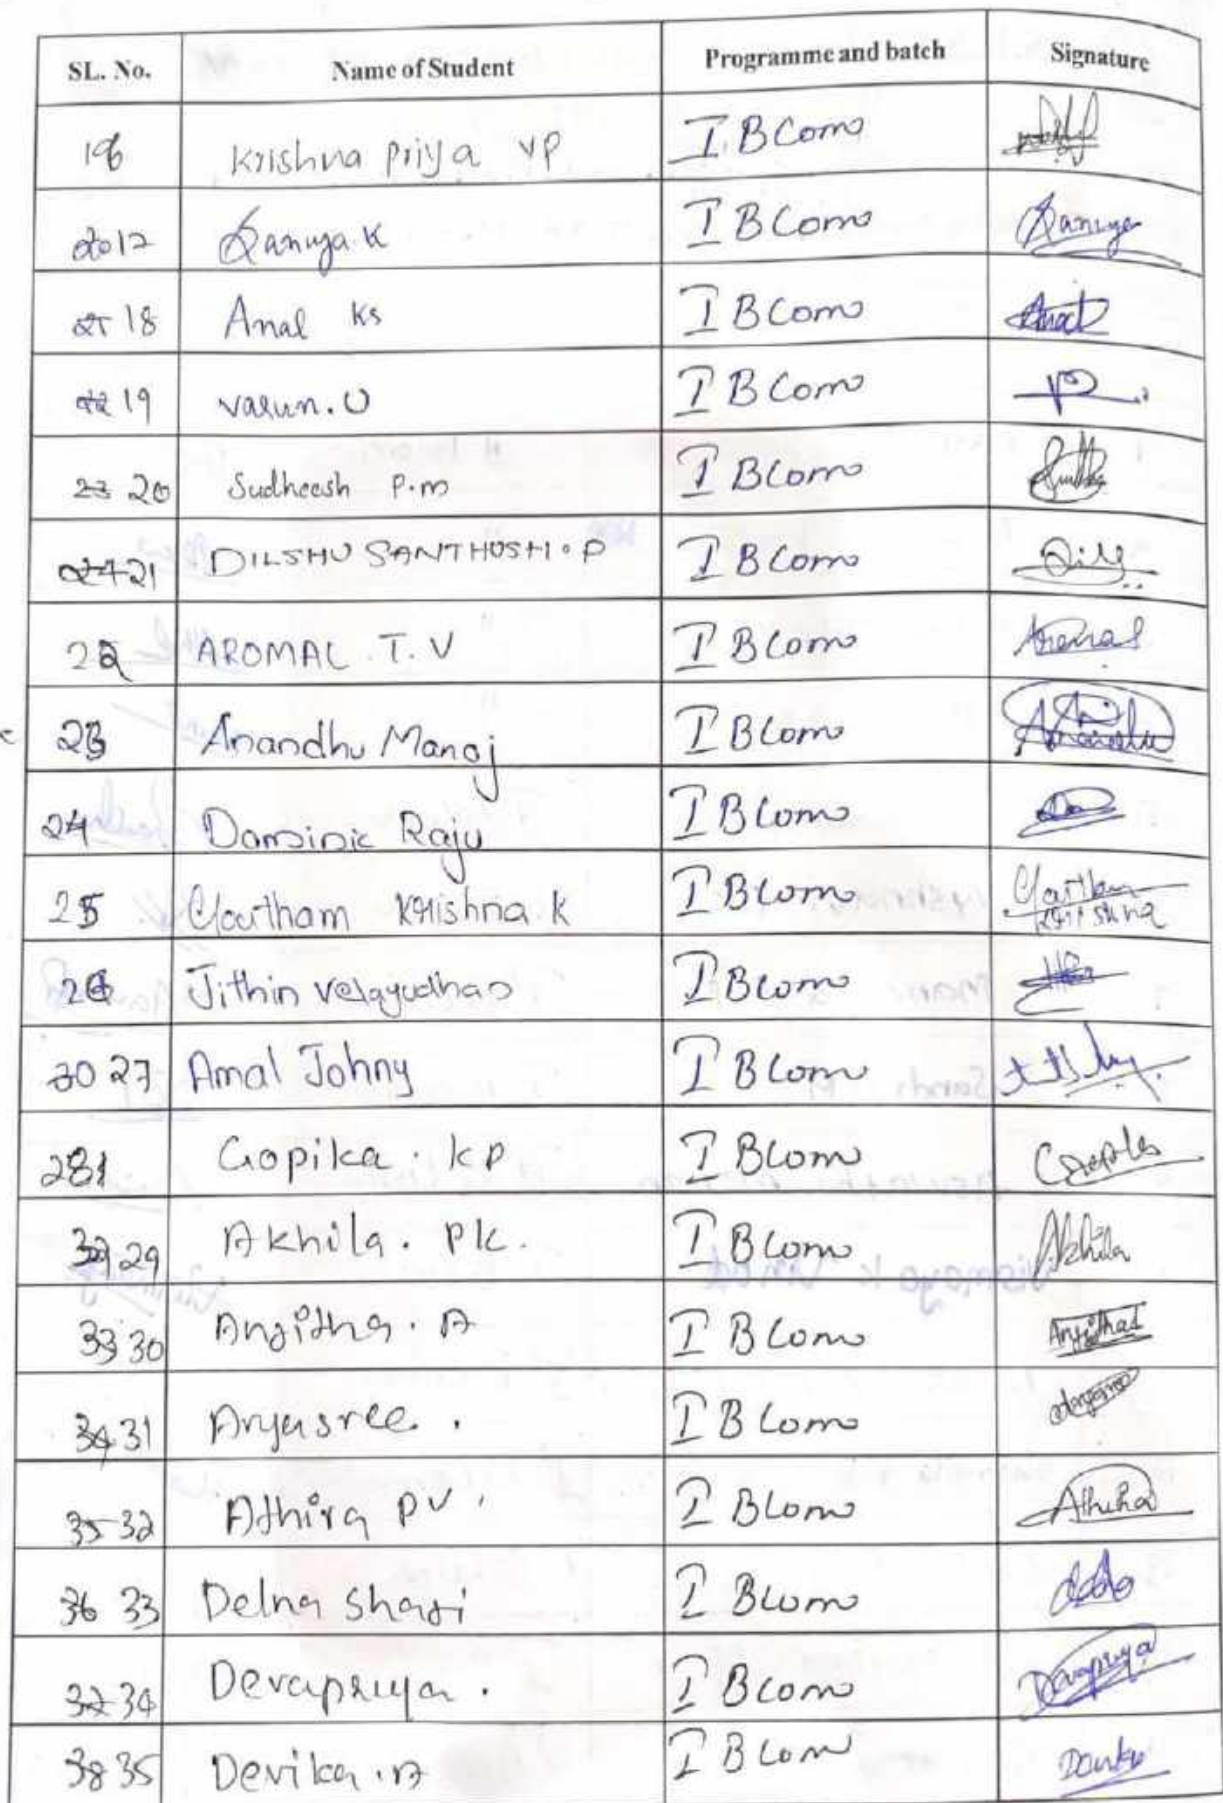 SL. No. Name of Student Programme and batch Signature
16 Krishna priya VP I BCom
20 17 Saniya K I BCom Saniya
21 18 Anal KS I BCom
22 19 Varun. U I BCom
23 20 Sudheesh P.m I BCom
24 21 DILSHU SANTHOSH. P I BCom
22 AROMAL T. V I BCom
23 Anandhu Manoj I BCom
24 Dominic Raju I BCom
25 Goutham Krishna K I BCom Goutham Krishna
26 Jithin Velayudhan I BCom
30 27 Amal Johny I BCom
28 Gopika. KP I BCom
32 29 Akhila. PK. I BCom Akhila
33 30 Anjitha. A I BCom Anjitha
34 31 Aryasree. I BCom
35 32 Athira PV I BCom Athira
36 33 Delna Shaji I BCom
37 34 Devapriya. I BCom Devapriya
38 35 Devika. A I BCom